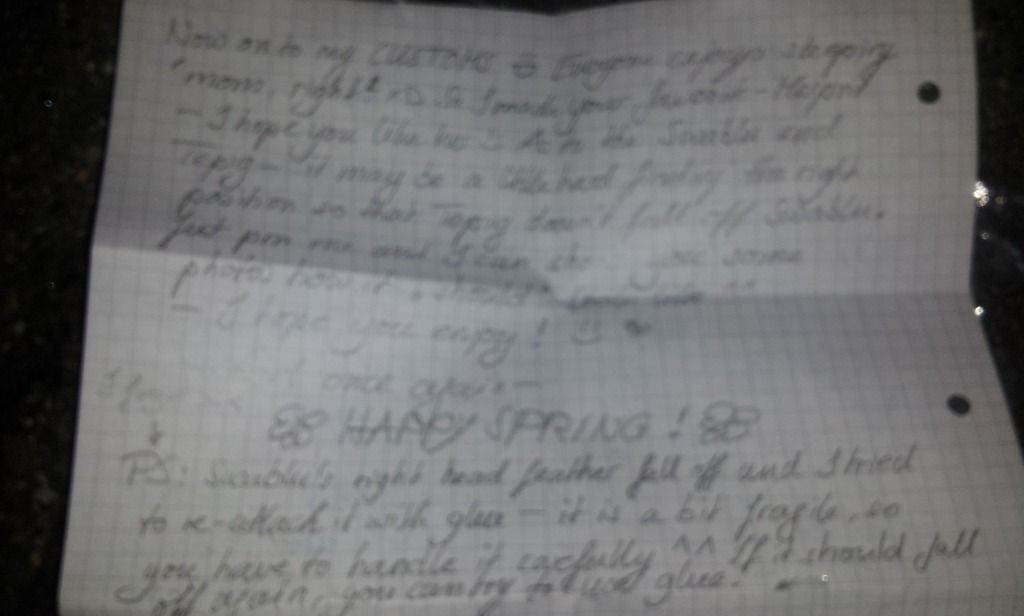 Now on to my CUSTOMS Everyone enjoys sleeping
mons, right? :D So I made your favorite
- I hope you like As to the Swablu and
Tepig - it may be a little hard finding the right
position so that Tepig doesn't fall off Swablu.
Just pm me and I can show you some
photos how it should
- I hope you enjoy! ☺
once again -
HAPPY SPRING!
PS: Swablu's right head feather fell off and I tried
to re-attach it with glue - it is a bit fragile, so
you have to handle it carefully ^^ If it should fall
off again, you can try to use glue!